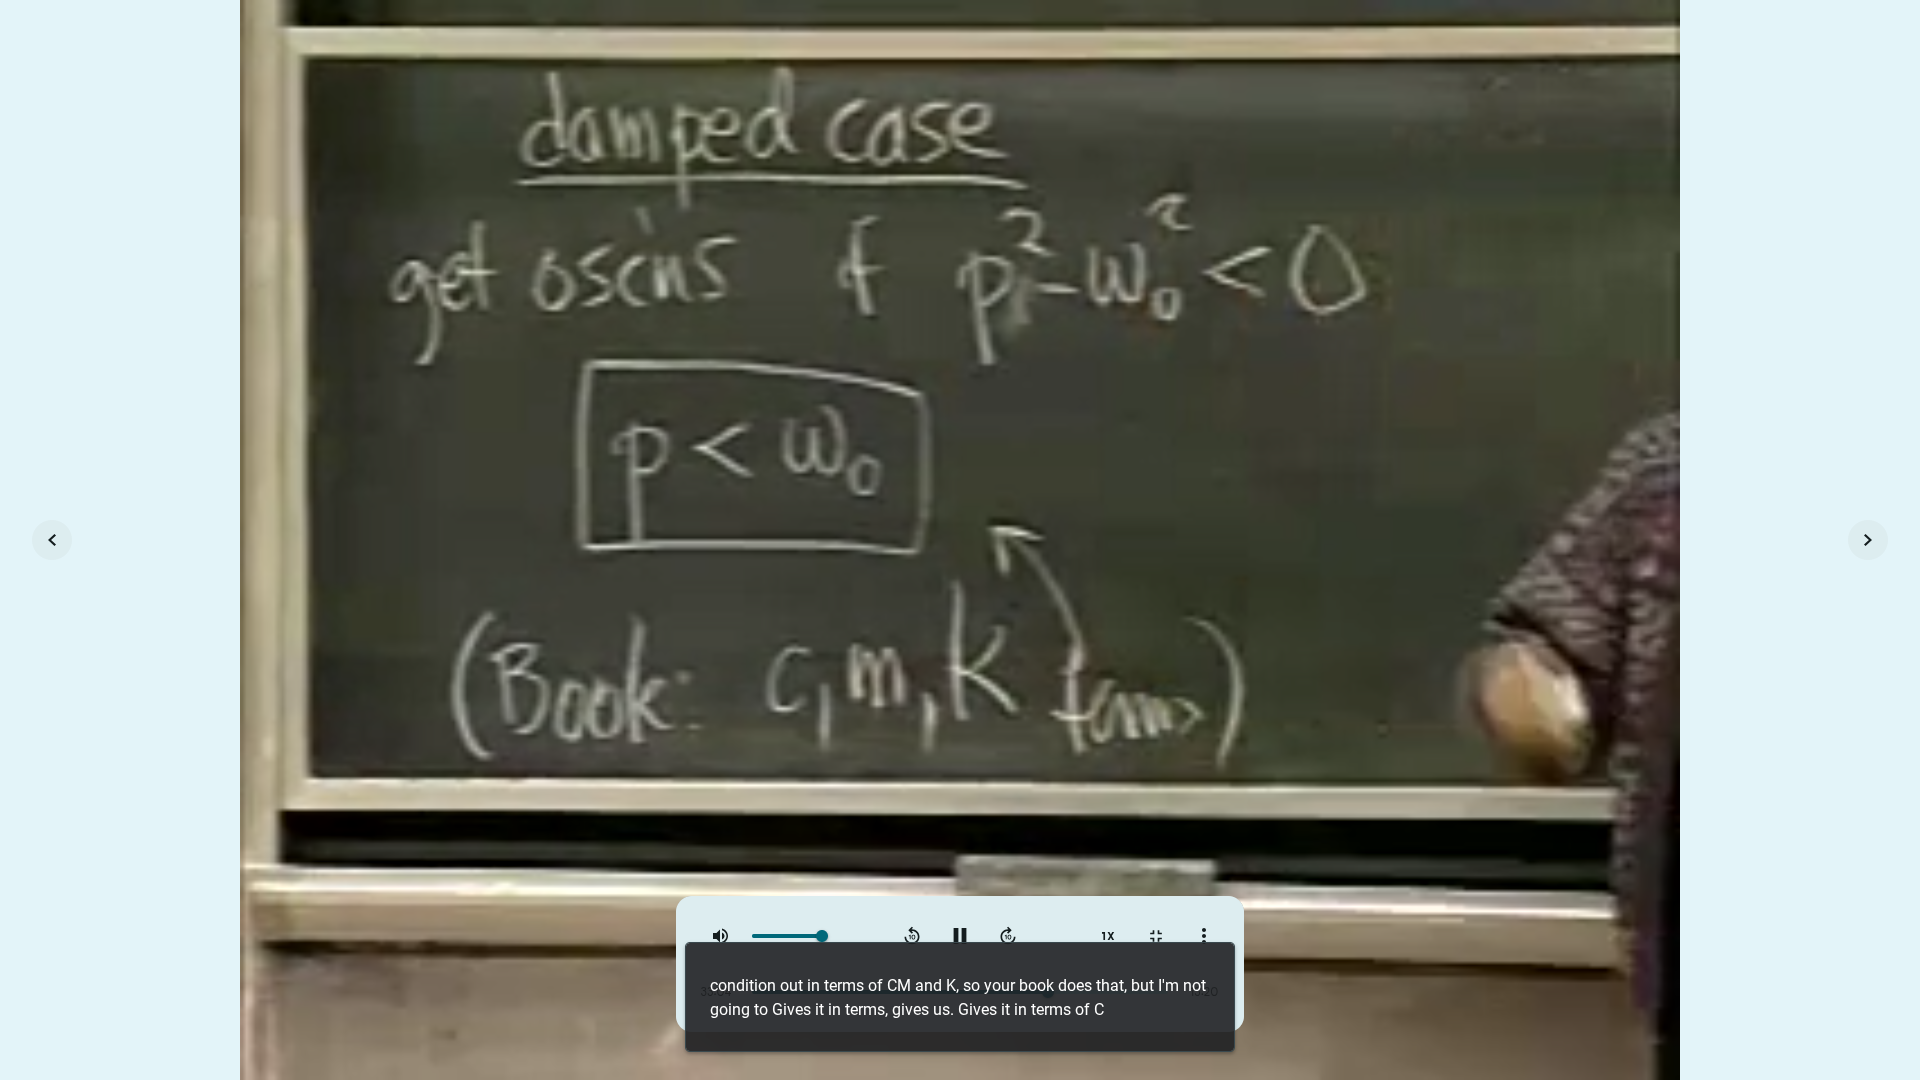 damped case
get oscins if p²-ω₀² < 0
p < ω₀
(Book: c, m, k terms)
1X
condition out in terms of CM and K, so your book does that, but I'm not
going to Gives it in terms, gives us. Gives it in terms of C